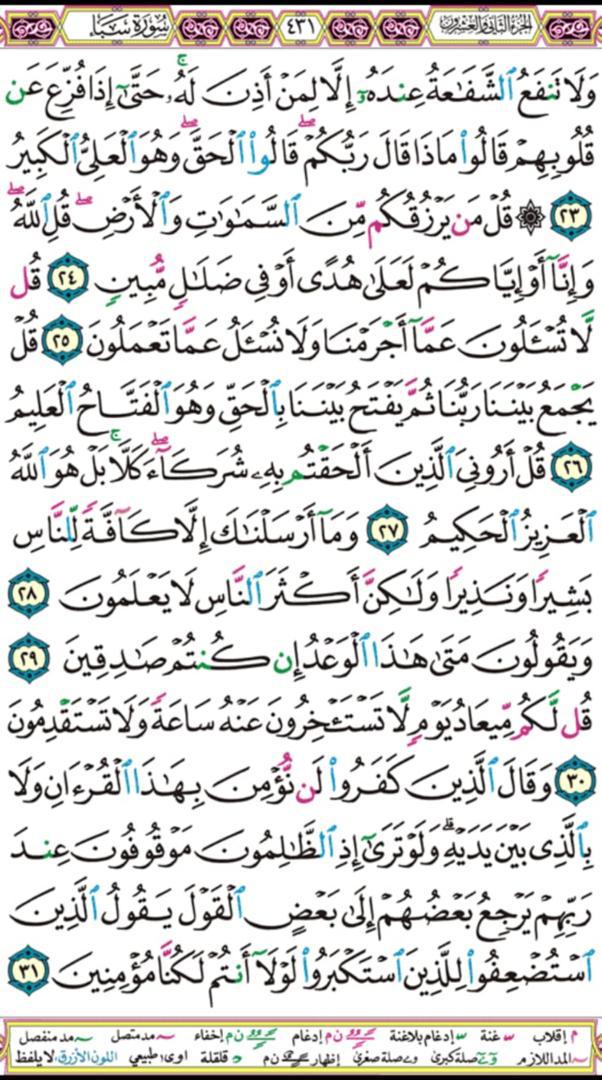 الجزء الثاني والعشرون ٤٣١ سورة سبإ
وَلَا تَنفَعُ ٱلشَّفَٰعَةُ عِندَهُۥٓ إِلَّا لِمَنْ أَذِنَ لَهُۥۚ حَتَّىٰٓ إِذَا فُزِّعَ عَن
قُلُوبِهِمْ قَالُوا۟ مَاذَا قَالَ رَبُّكُمْۖ قَالُوا۟ ٱلْحَقَّۖ وَهُوَ ٱلْعَلِىُّ ٱلْكَبِيرُ
٢٣ ۞ قُلْ مَن يَرْزُقُكُم مِّنَ ٱلسَّمَٰوَٰتِ وَٱلْأَرْضِۖ قُلِ ٱللَّهُۖ
وَإِنَّآ أَوْ إِيَّاكُمْ لَعَلَىٰ هُدًى أَوْ فِى ضَلَٰلٍ مُّبِينٍ ٢٤ قُل
لَّا تُسْـَٔلُونَ عَمَّآ أَجْرَمْنَا وَلَا نُسْـَٔلُ عَمَّا تَعْمَلُونَ ٢٥ قُلْ
يَجْمَعُ بَيْنَنَا رَبُّنَا ثُمَّ يَفْتَحُ بَيْنَنَا بِٱلْحَقِّ وَهُوَ ٱلْفَتَّاحُ ٱلْعَلِيمُ
٢٦ قُلْ أَرُونِىَ ٱلَّذِينَ أَلْحَقْتُم بِهِۦ شُرَكَآءَۖ كَلَّاۚ بَلْ هُوَ ٱللَّهُ
ٱلْعَزِيزُ ٱلْحَكِيمُ ٢٧ وَمَآ أَرْسَلْنَٰكَ إِلَّا كَآفَّةً لِّلنَّاسِ
بَشِيرًا وَنَذِيرًا وَلَٰكِنَّ أَكْثَرَ ٱلنَّاسِ لَا يَعْلَمُونَ ٢٨
وَيَقُولُونَ مَتَىٰ هَٰذَا ٱلْوَعْدُ إِن كُنتُمْ صَٰدِقِينَ ٢٩
قُل لَّكُم مِّيعَادُ يَوْمٍ لَّا تَسْتَـْٔخِرُونَ عَنْهُ سَاعَةً وَلَا تَسْتَقْدِمُونَ
٣٠ وَقَالَ ٱلَّذِينَ كَفَرُوا۟ لَن نُّؤْمِنَ بِهَٰذَا ٱلْقُرْءَانِ وَلَا
بِٱلَّذِى بَيْنَ يَدَيْهِۗ وَلَوْ تَرَىٰٓ إِذِ ٱلظَّٰلِمُونَ مَوْقُوفُونَ عِندَ
رَبِّهِمْ يَرْجِعُ بَعْضُهُمْ إِلَىٰ بَعْضٍ ٱلْقَوْلَ يَقُولُ ٱلَّذِينَ
ٱسْتُضْعِفُوا۟ لِلَّذِينَ ٱسْتَكْبَرُوا۟ لَوْلَآ أَنتُمْ لَكُنَّا مُؤْمِنِينَ ٣١
م إقلاب غنة إدغام بلاغنة ن م إدغام ن م إخفاء مد متصل مد منفصل
المد اللازم صلة كبرى صلة صغرى إظهار ن م قلقلة اوى؛ طبيعي اللون الأزرق لا يلفظ